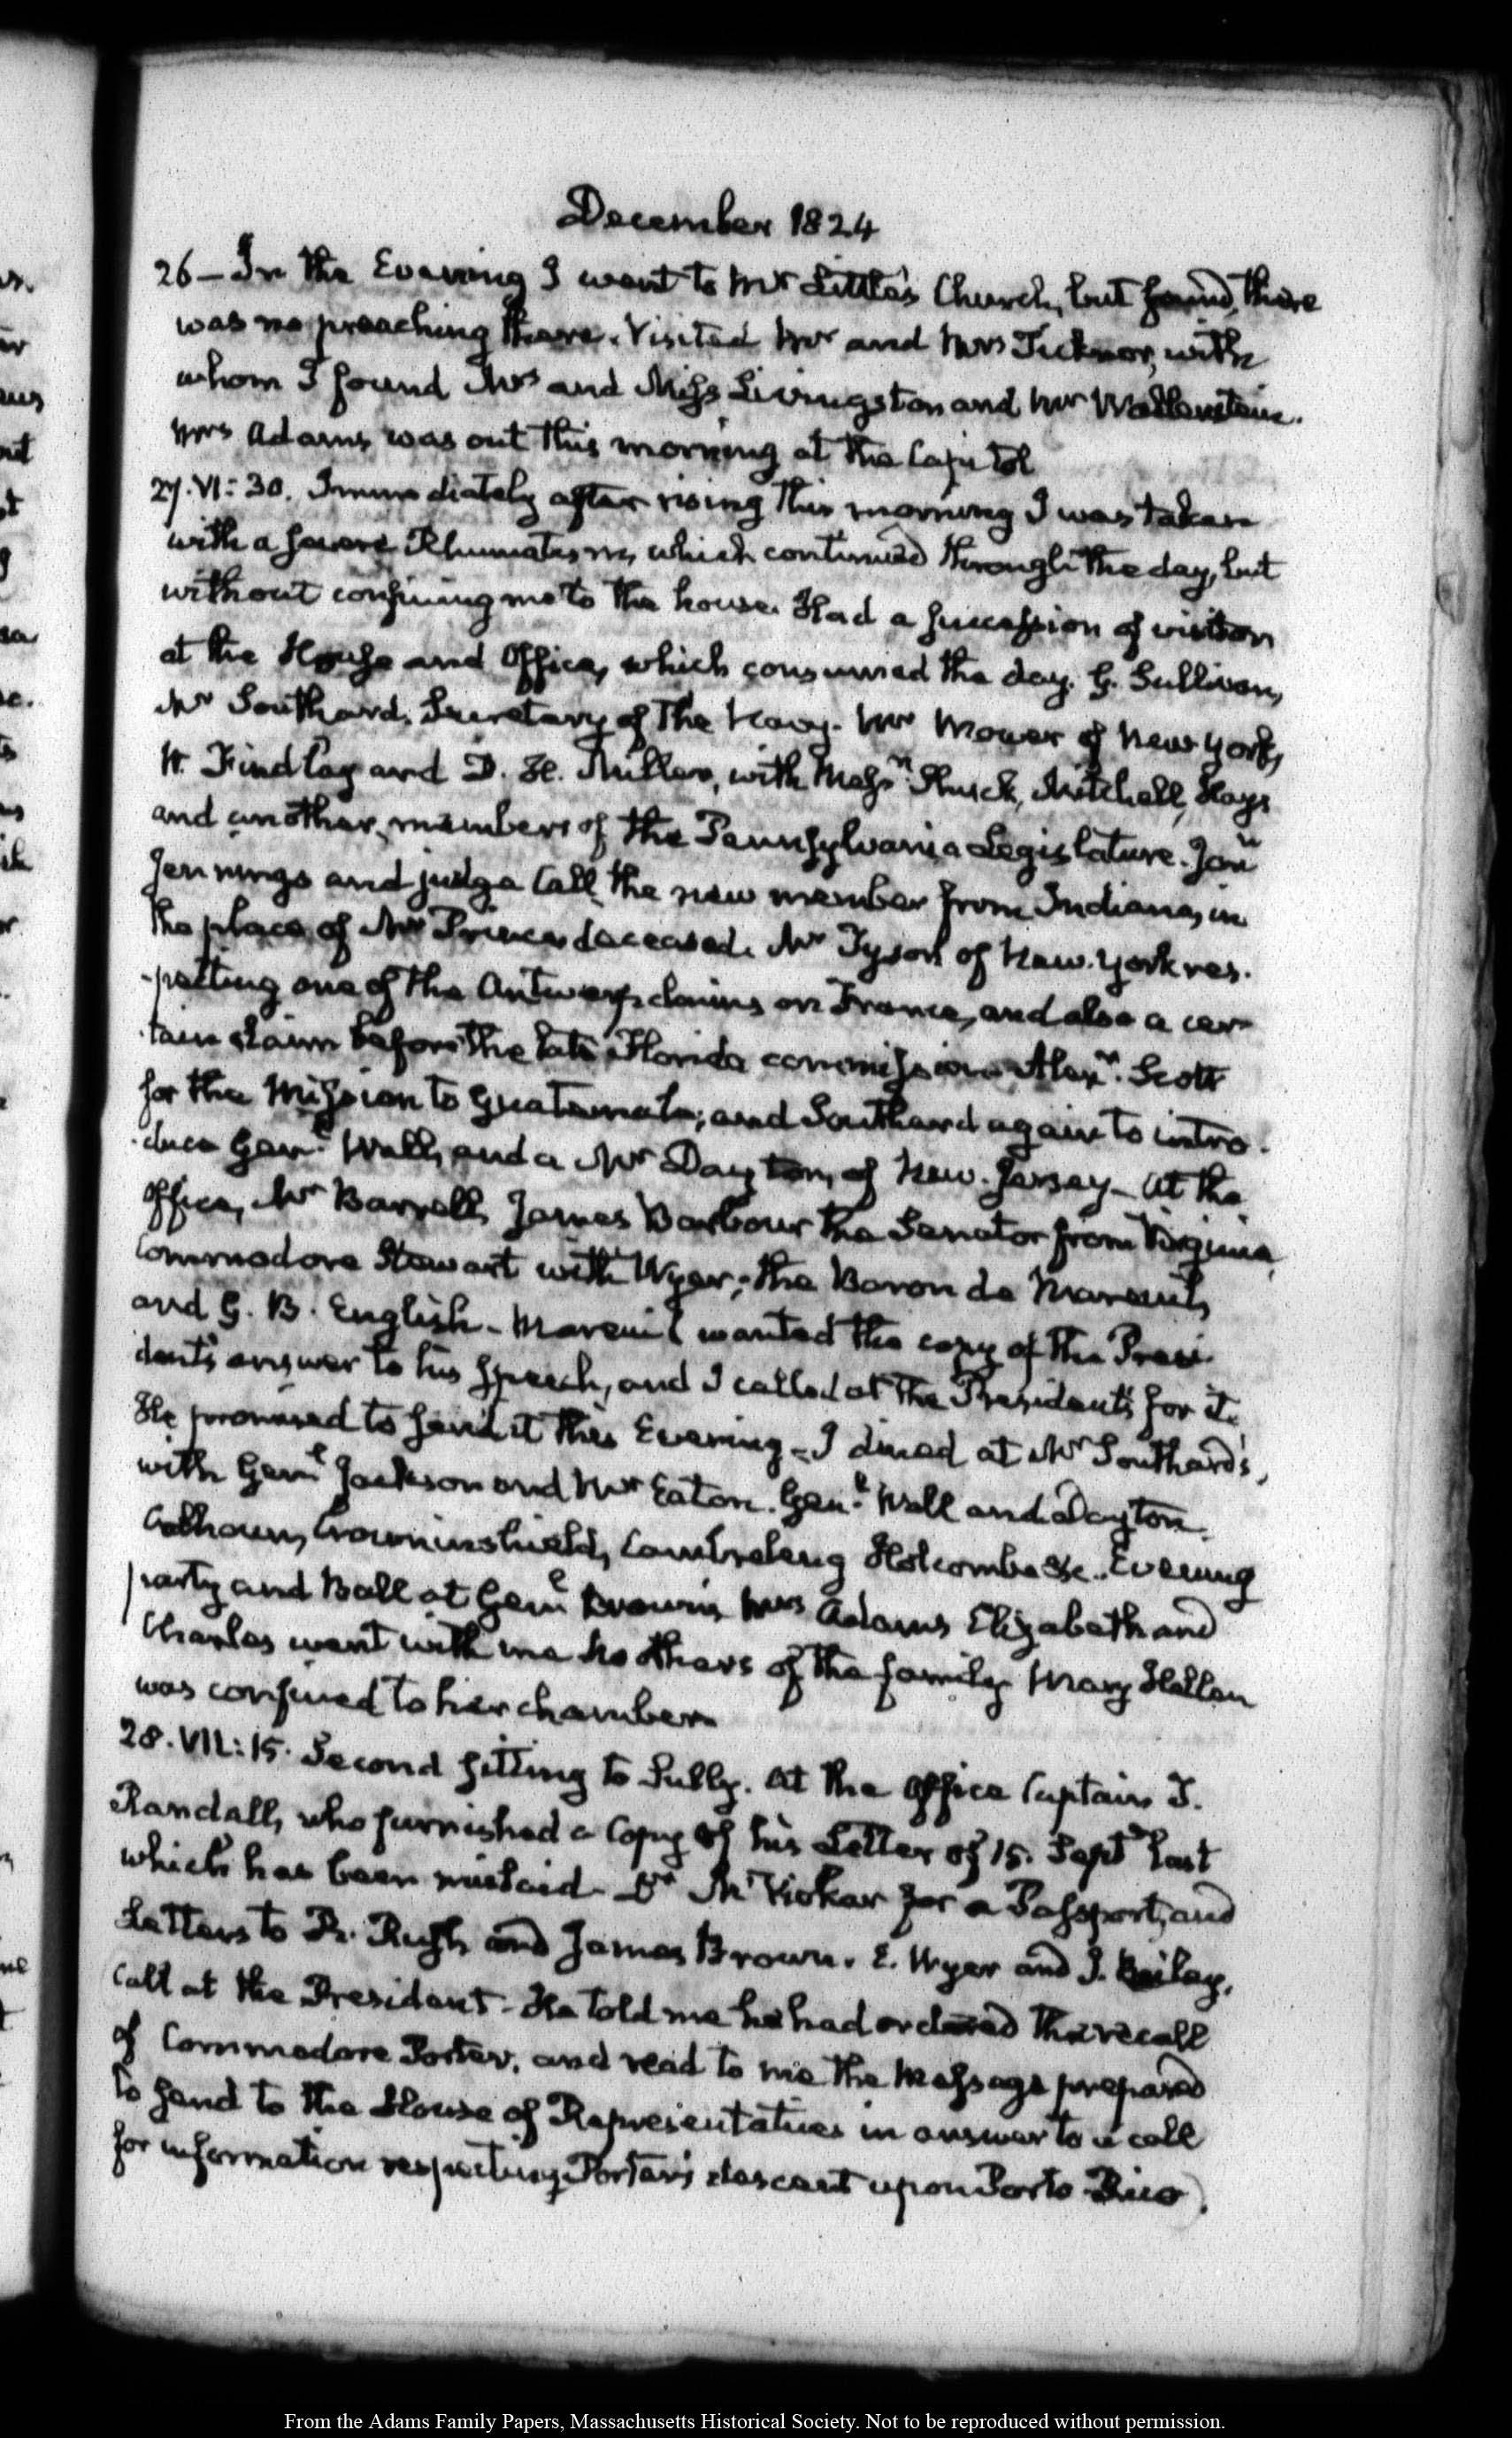 December 1824
26 – In the Evening I went to Mr Little's Church, but found, there
was no preaching there. Visited Mr and Mrs Ticknor, with
whom I found Mrs and Miss Livingston and Mr Wallenstein.
Mrs Adams was out this morning at the Capitol
27. VI: 30. Immediately after rising this morning I was taken
with a severe Rheumatism, which continued through the day, but
without confining me to the house. Had a succession of visitors
at the House and Office, which consumed the day. G. Sullivan,
Mr Southard, Secretary of the Navy. Mr Mower of New York,
W. Findlay and D. H. Miller, with Messrs. Shuck, Mitchell, Hays
and another, members of the Pennsylvania Legislature. Jonn
Jennings and judge Call, the new member from Indiana, in
the place of Mr Prince deceased. Mr Tyson of New-York res-
-pecting one of the Antwerp claims on France, and also a cer-
-tain claim before the late Florida commission. Alexr. Scott
for the Mission to Guatemala; and Southard again to intro-
-duce Genl. Wall, and a Mr Dayton, of New-Jersey – At the
Office, Mr Barrell, James Barbour the Senator from Virginia,
Commodore Stewart with Wyer; the Baron de Mareuil,
and G. B. English – Mareuil wanted the copy of the Presi-
dent's answer to his Speech, and I called at the President's for it.
He promised to send it this Evening – I dined at Mr Southard's,
with Genl Jackson and Mr Eaton. Genl. Wall and Dayton.
Calhoun, Crowninshield, Cambreleng Holcombe &c. Evening
party and Ball at Genl Brown's Mrs Adams Elizabeth and
Charles went with me no others of the family Mary Hellen
was confined to her chamber.
28. VII: 15. Second sitting to Sully. At the Office Captain T.
Randall, who furnished a Copy of his Letter of 15. Septr last
which has been mislaid – Dr McVickar for a Passport, and
Letters to R. Rush and James Brown. E. Wyer and J. Bailey,
Call at the President – He told me he had ordered the recall
of Commodore Porter, and read to me the Message prepared
to send to the House of Representatives in answer to a call
for information respecting Porter's descent upon Porto-Rico.
From the Adams Family Papers, Massachusetts Historical Society. Not to be reproduced without permission.